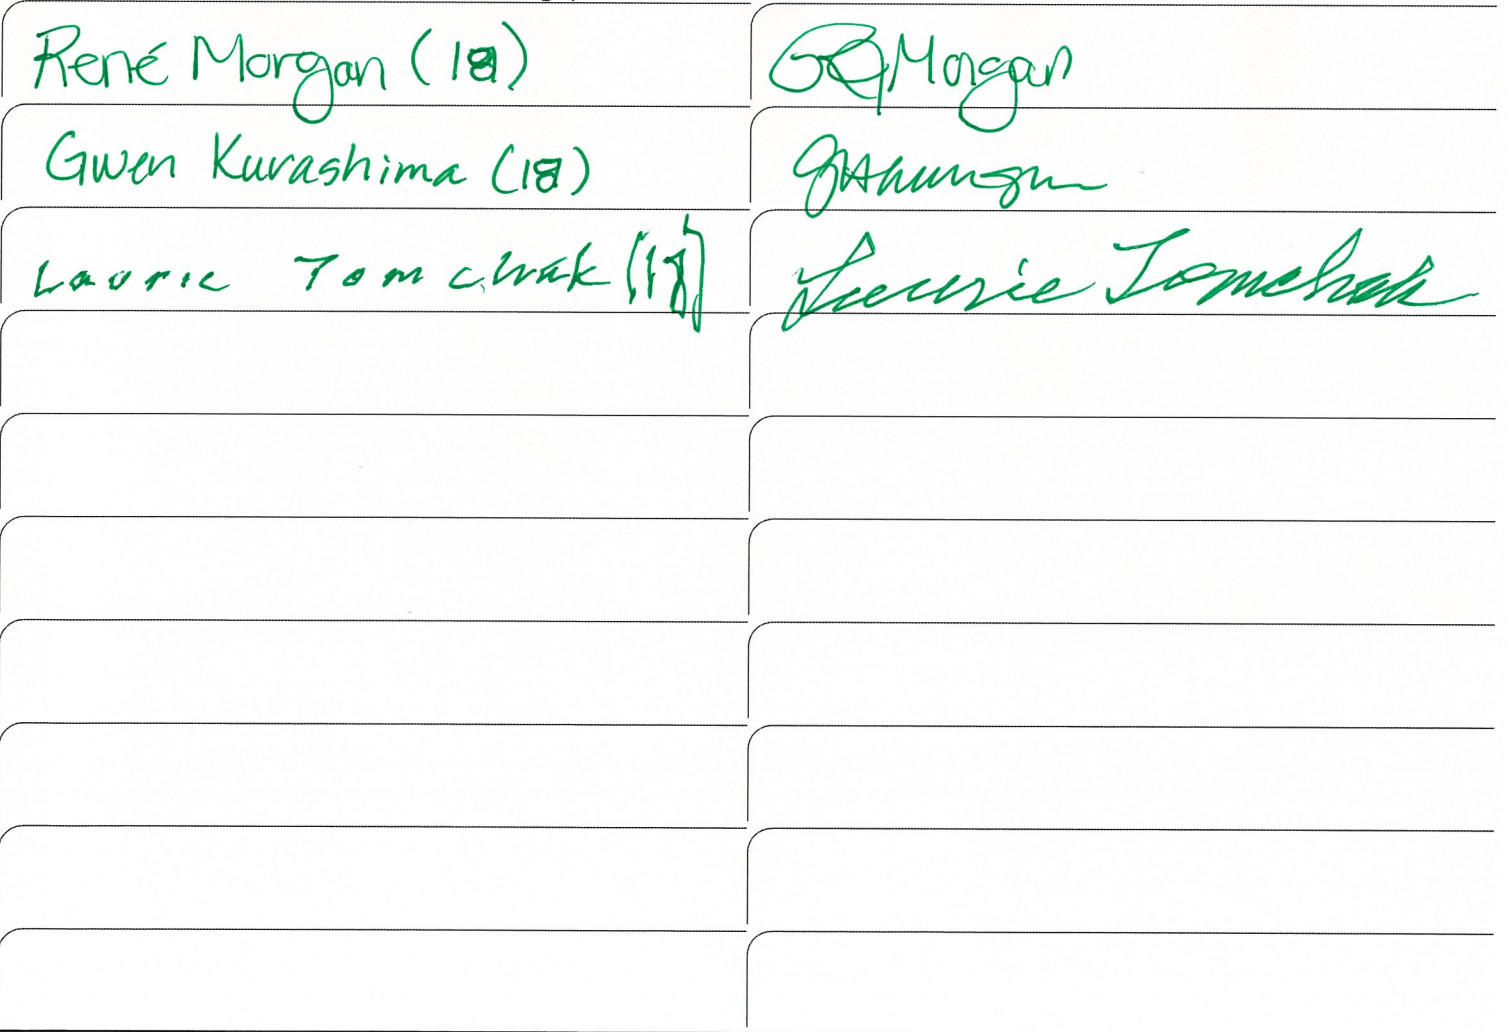 René Morgan (18) GR Morgan
Gwen Kurashima (18)
Laurie Tomchak (18) Laurie Tomchak